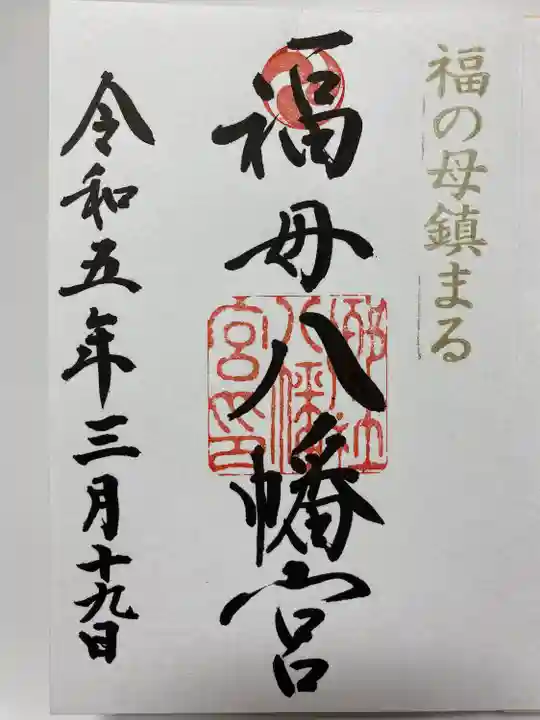 福の母鎮まる
福母八幡宮
令和五年三月十九日